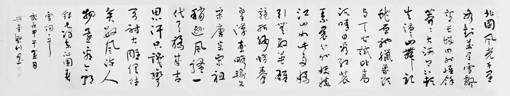 北国风光千里
冰封万里雪飘
望长城内外惟余
莽莽大河上下顿
失滔滔山舞银
蛇原驰蜡象欲
与天公试比高
须晴日看红装
素裹分外妖娆
江山如此多娇
引无数英雄
竞折腰惜秦
皇汉武略输文
采唐宗宋祖
稍逊风骚一
代天骄成吉
思汗只识弯
弓射大雕俱往
矣数风流人
物还看今朝
沁园春
雪词一首
甲午